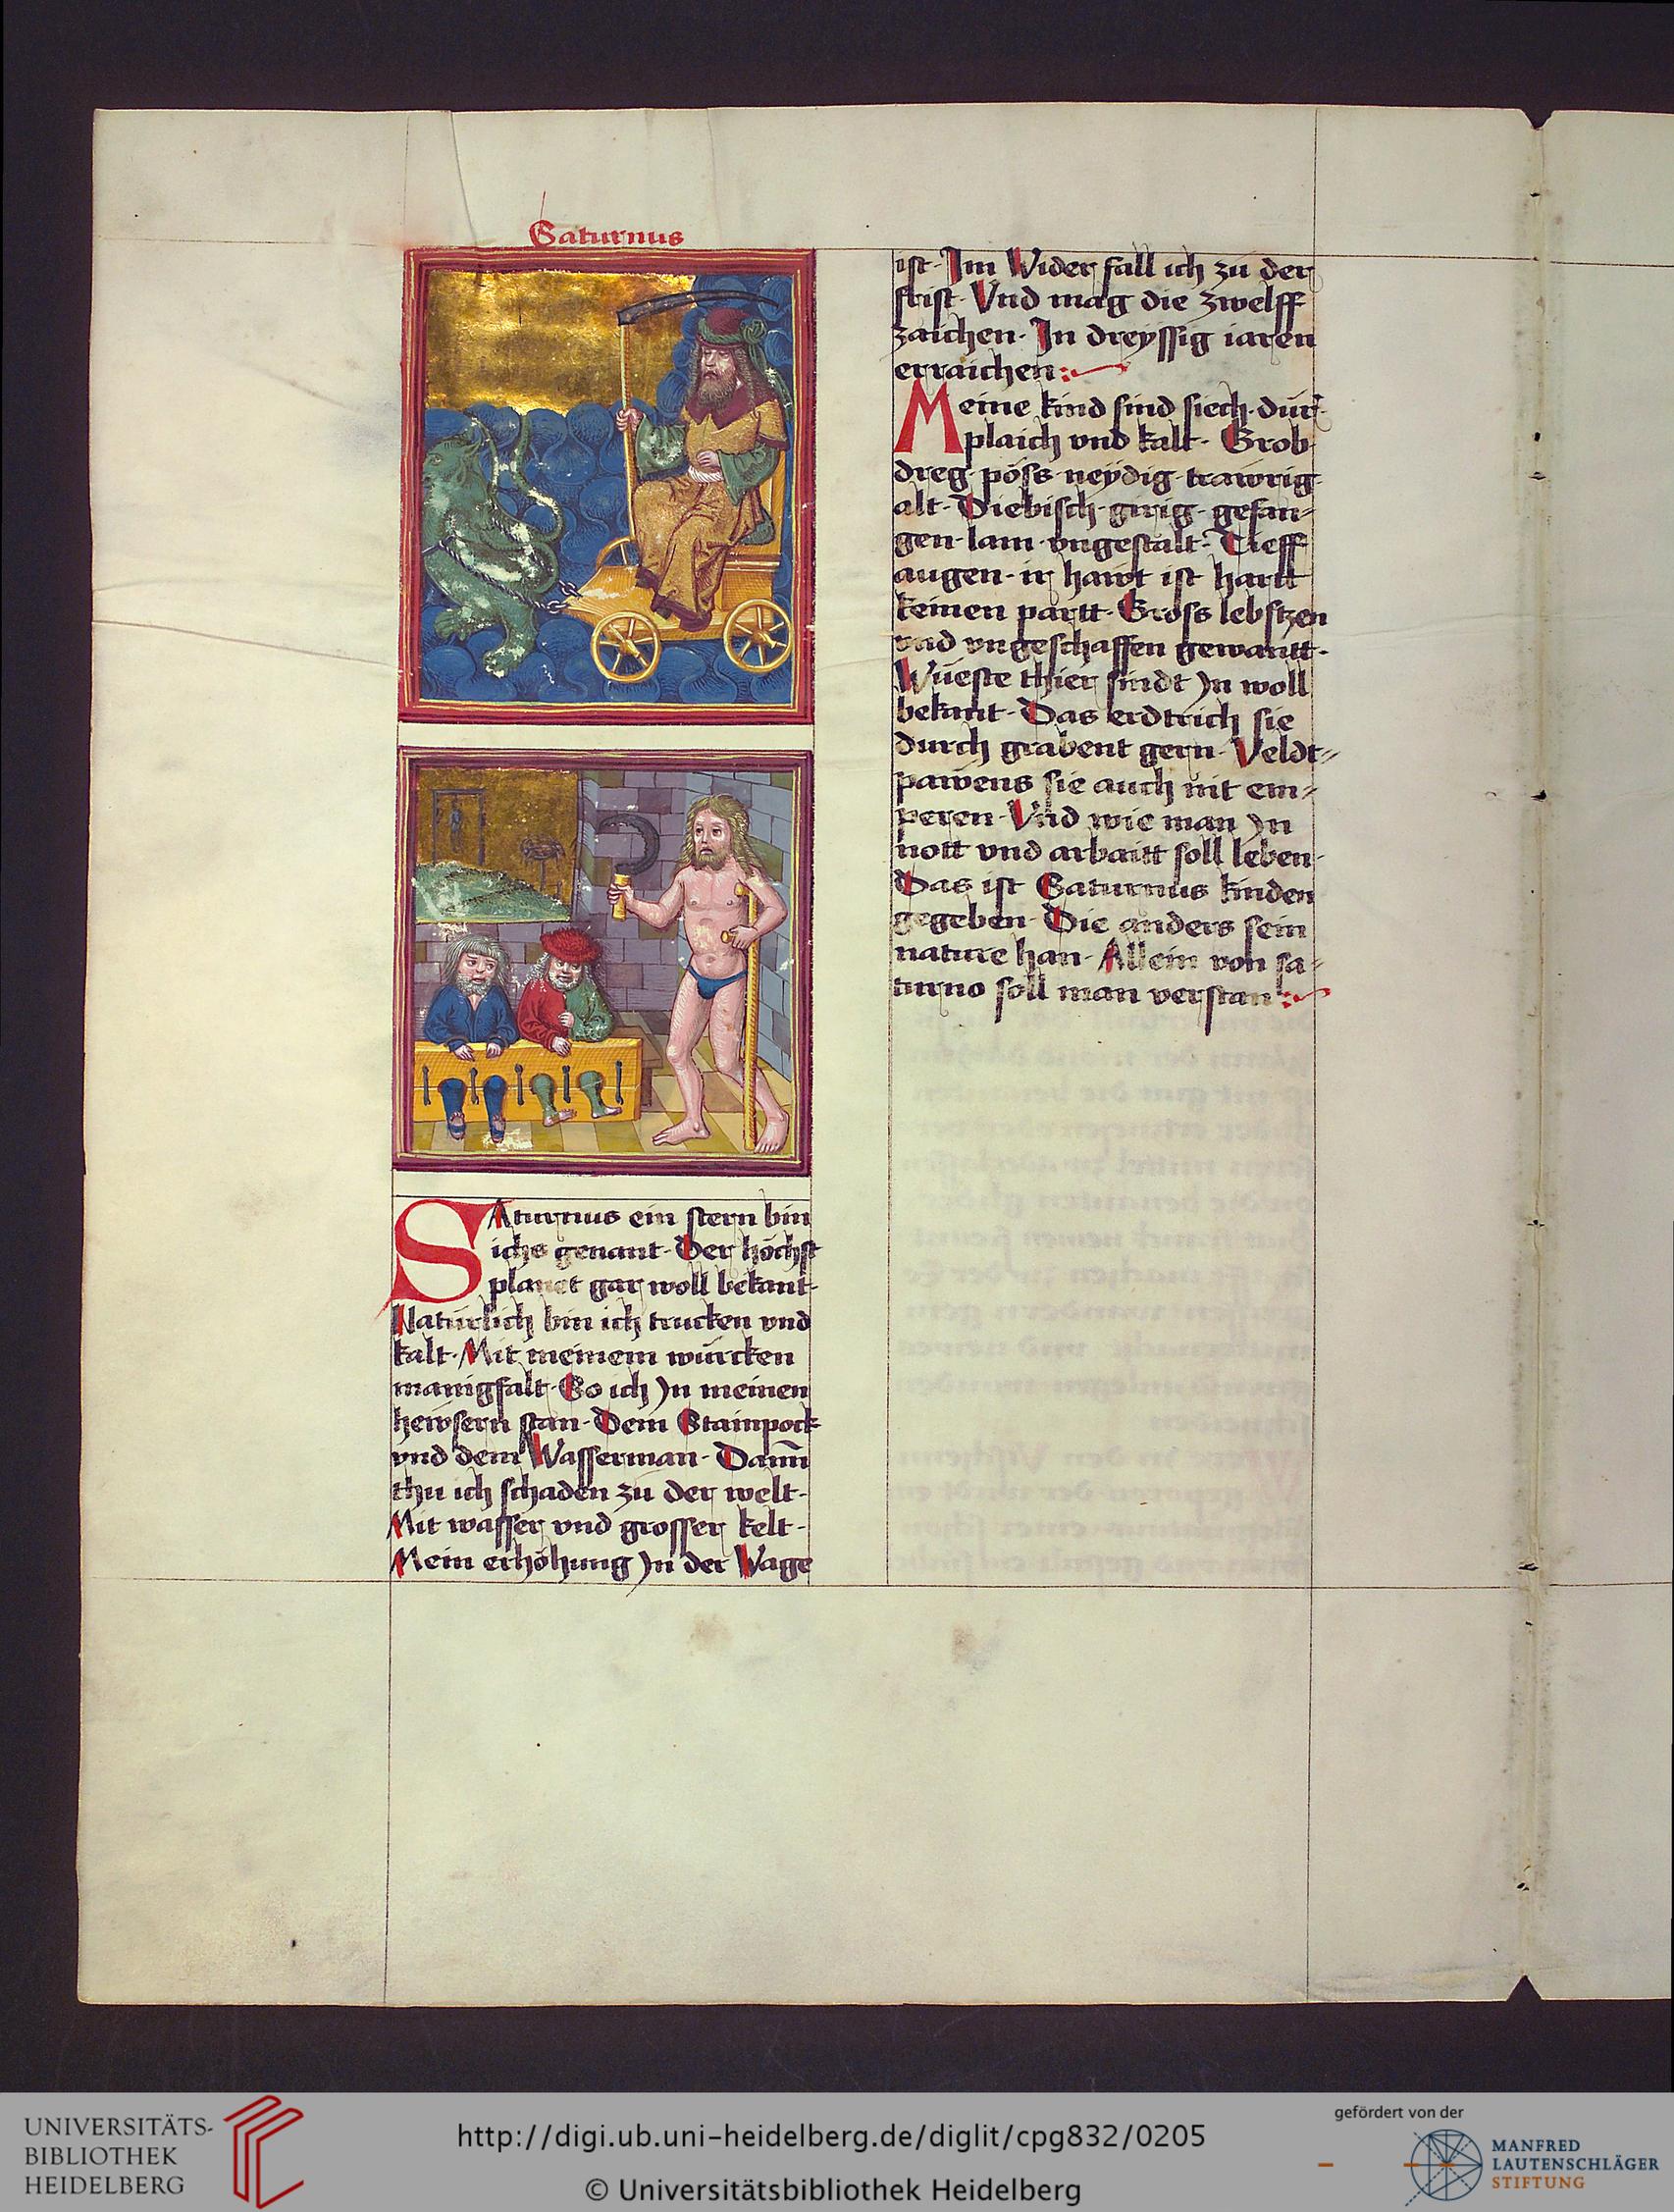 Saturnus
SAturnus ein stern bin
ichs genant. Der höchst
planet gar woll bekant.
Natürlich bin ich trucken vnd
kalt. Mit meinem würcken
manigfalt. So ich Jn meinen
hewsern stan. Dem Stainpock
vnd dem Wasserman. Dann
thu ich schaden zü der welt.
Mit wasser vnd grosser kelt.
Mein erhöhung Jn der Wage
ist. Im Wider fall ich zü der
frist. Vnd mag die zwelff
zaichen. In dreyssig iaren
erraichen:
Meine kind sind siech. dürr.
plaich vnd kalt. Grob
dreg. pöss. neydig. trawrig.
alt. Diebisch. girig. gefan-
gen. lam. vngestalt. Tieff
augen. ir hawt ist hartt
keinen partt. Gross lebstzen
vnd vngeschaffen gewantt.
Wüeste thier sindt Jn woll
bekant. Das erdtrich sie
durch grabent gern. Veldt-
pawens sie auch nit em-
peren. Vnd wie man Jn
nott vnd arbaitt soll leben.
Das ist Saturnus kinden
gegeben. Die anders sein
nature han. Allein von sa-
turno soll man verstan:
UNIVERSITÄTS-
BIBLIOTHEK
HEIDELBERG
http://digi.ub.uni-heidelberg.de/diglit/cpg832/0205
© Universitätsbibliothek Heidelberg
gefördert von der
MANFRED
LAUTENSCHLÄGER
STIFTUNG